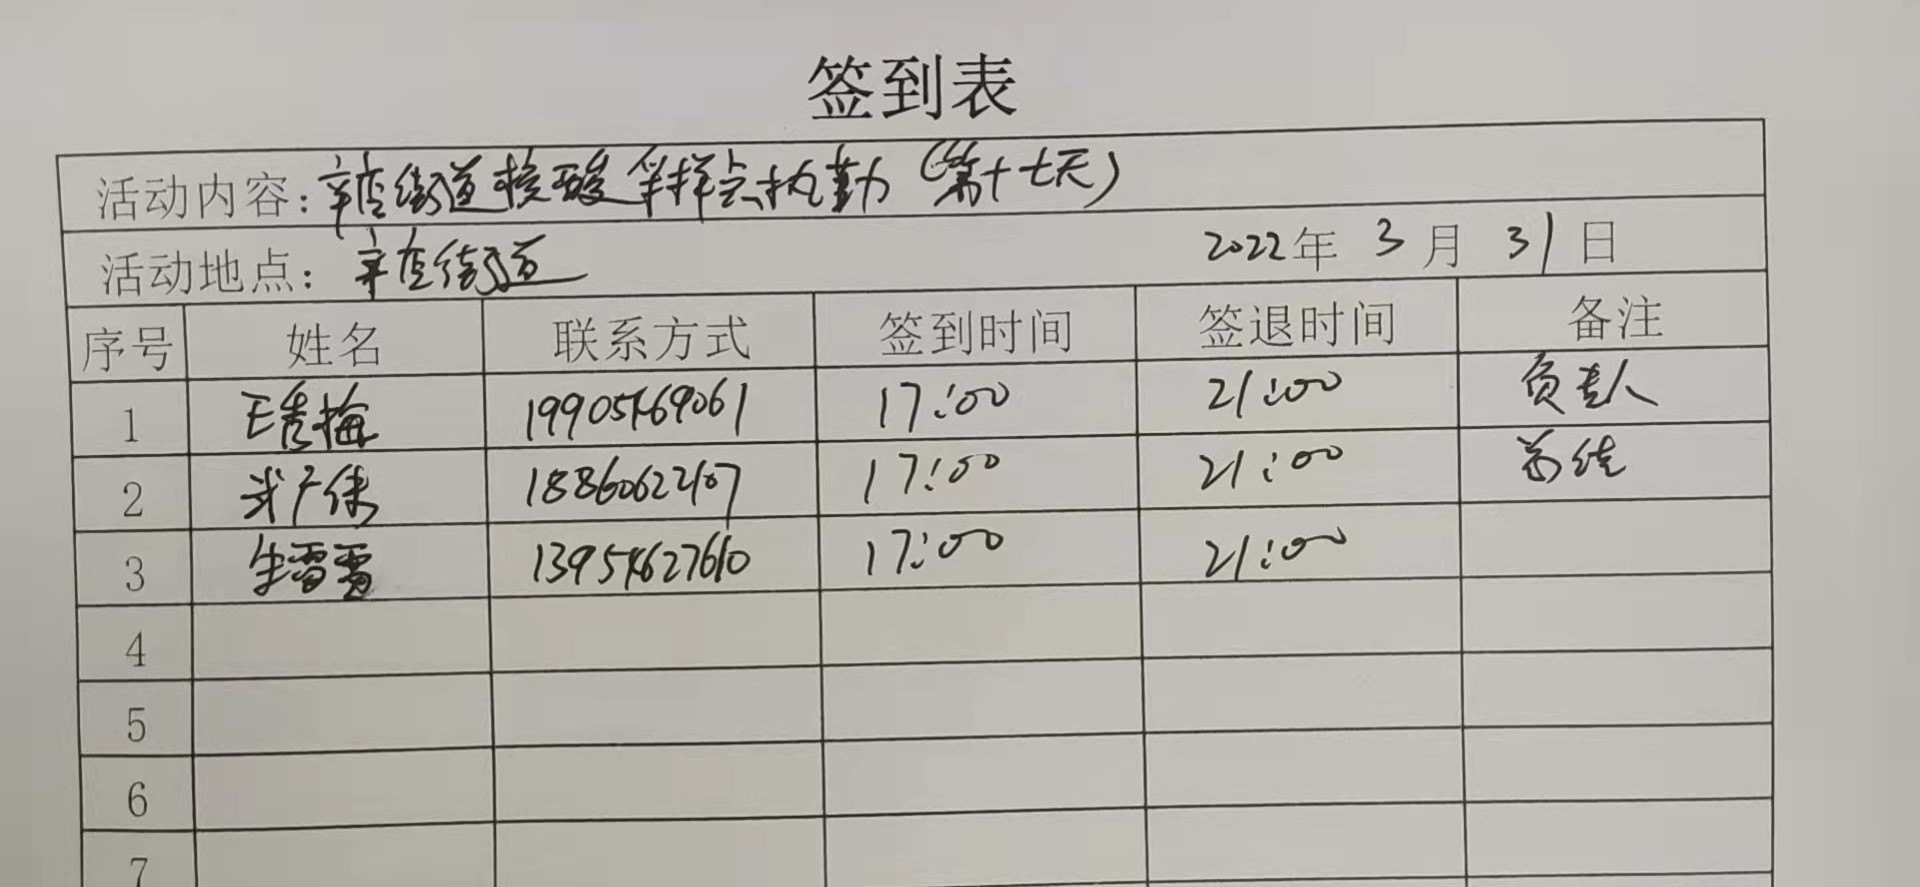 签到表
活动内容:辛店街道核酸采样点执勤(第十七天)
活动地点:辛店街道 2022年 3月 31日
序号 姓名 联系方式 签到时间 签退时间 备注
1 王秀梅 19905469061 17:00 21:00 负责人
2 18860622107 17:00 21:00 总结
3 生雷雷 13954627610 17:00 21:00
4
5
6
7